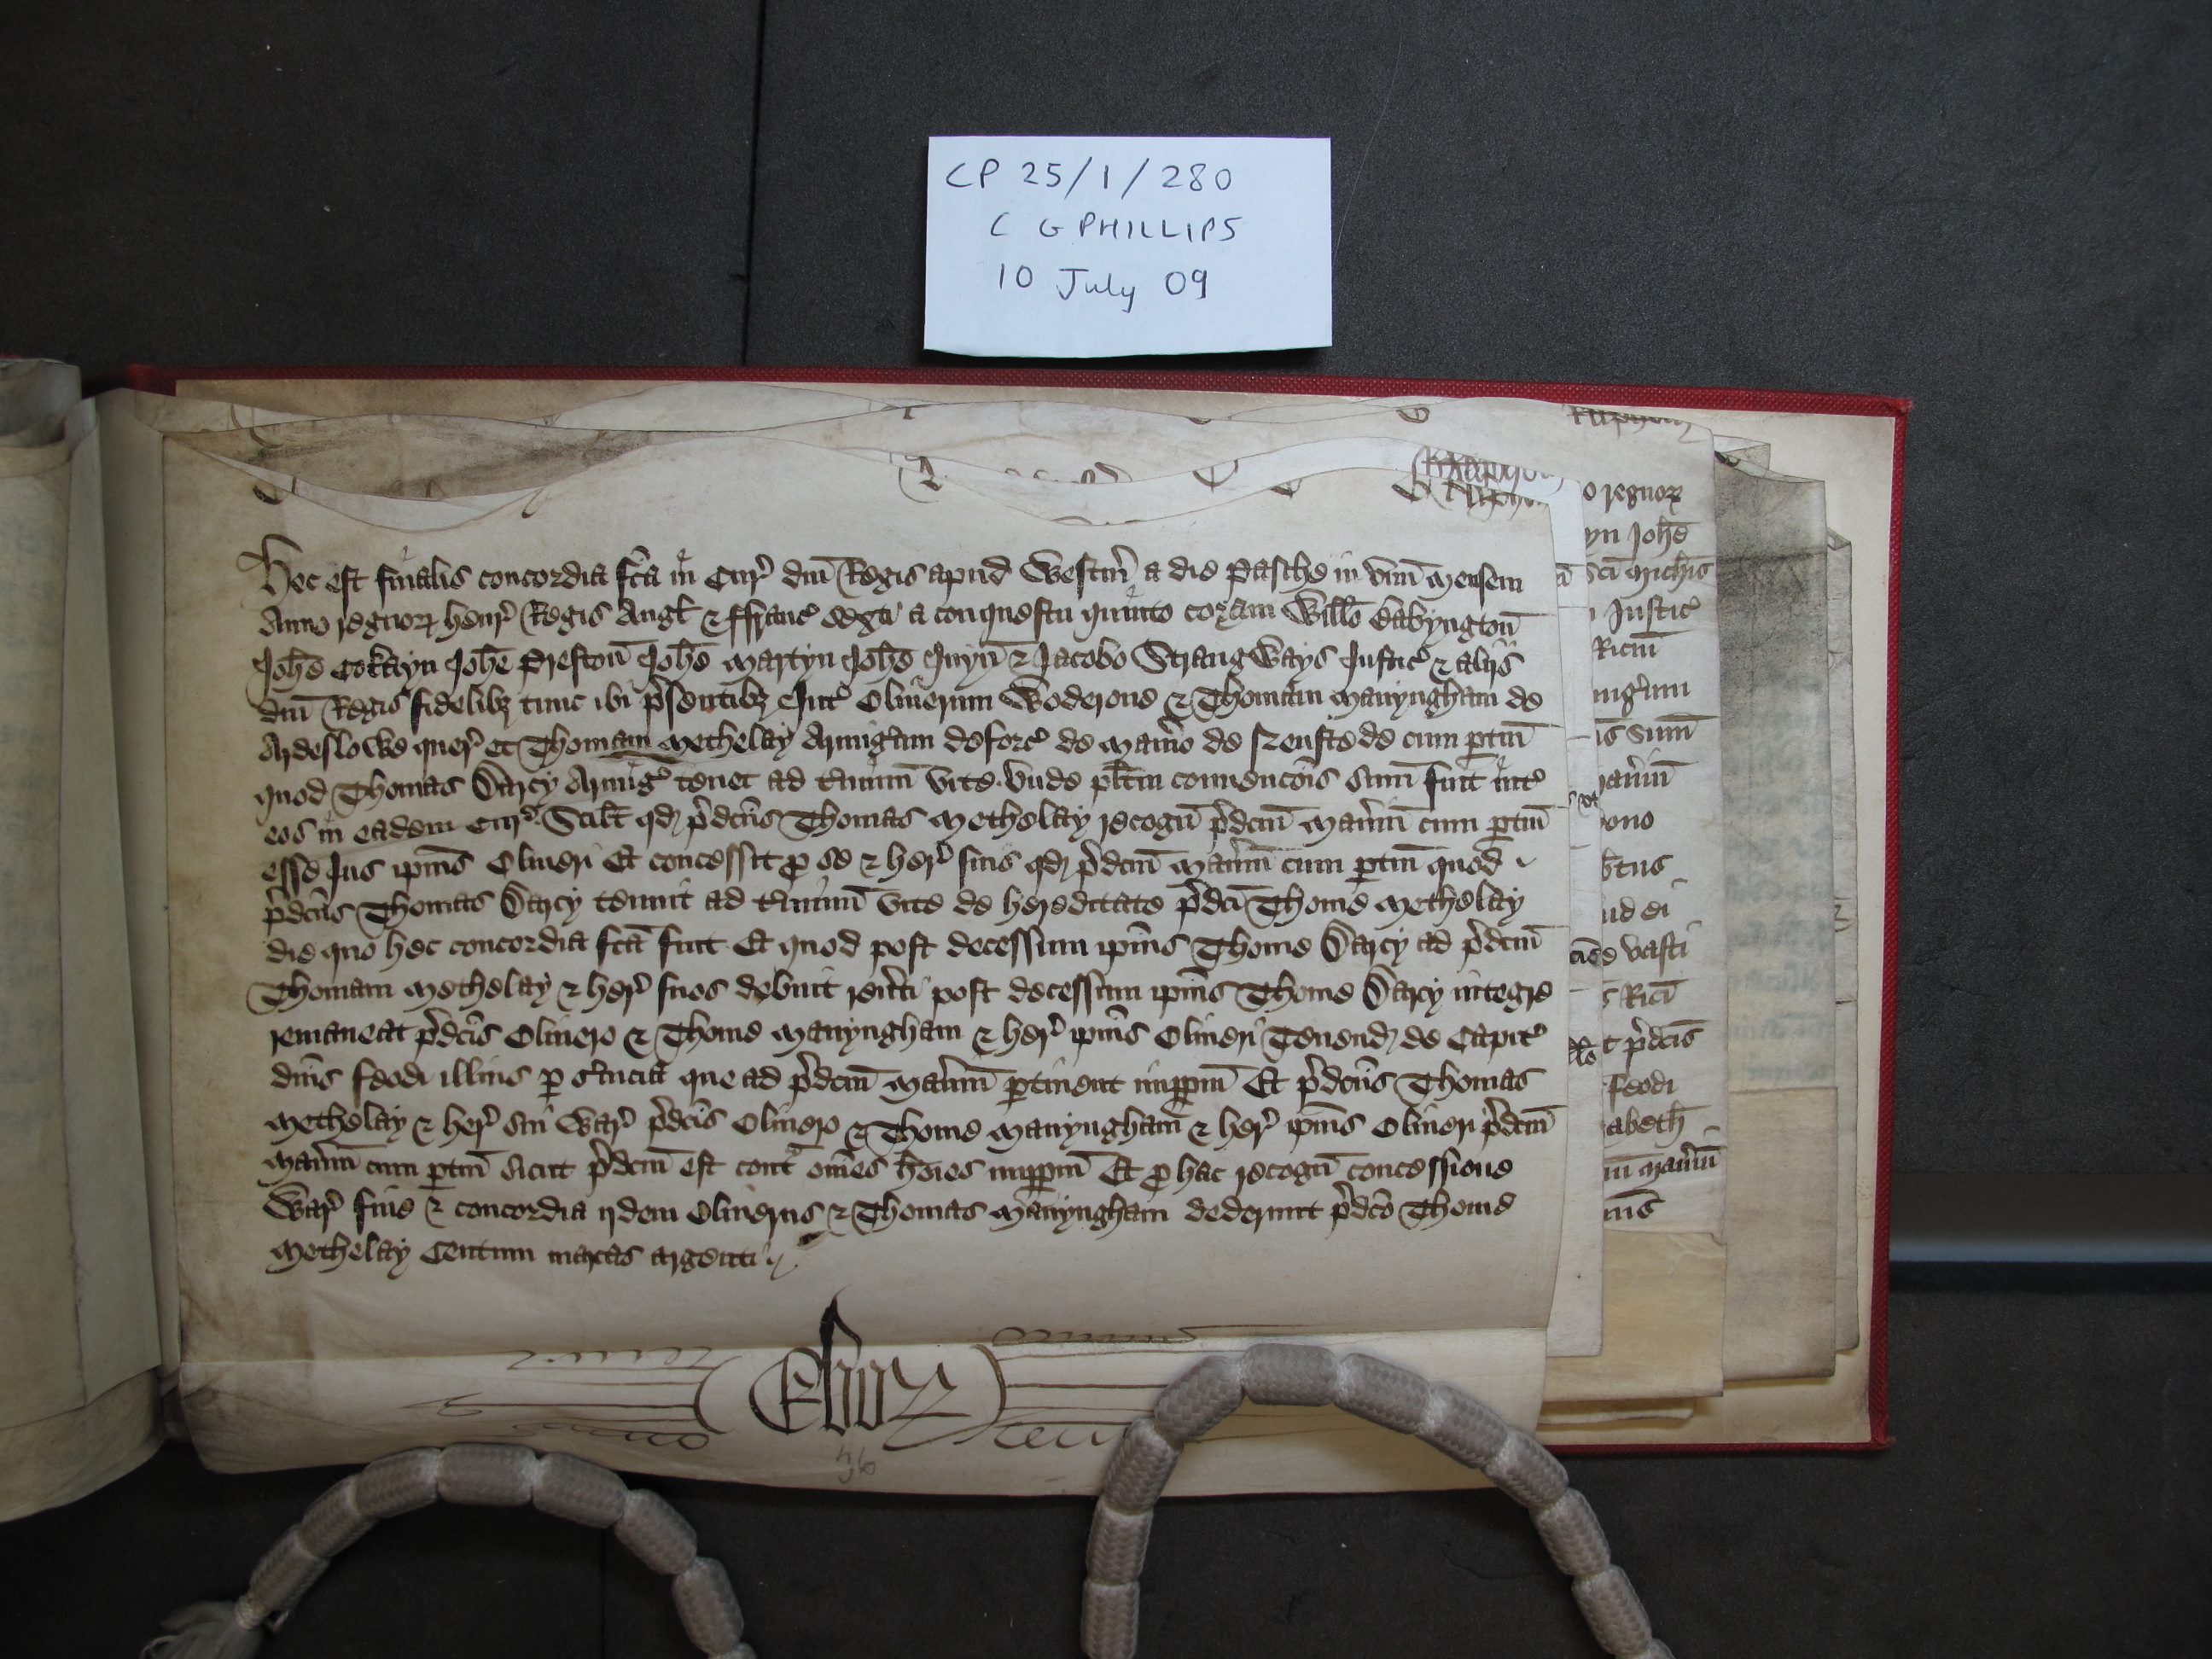 CP 25/1/280
C G PHILLIPS
10 July 09
Hec est finalis concordia fc̄a in Cur̉ dn̄i Regis apud Westm̉ a die Pasche in vnū mensem
Anno regnoꝝ Henr̉ Regis Angl̄ & ffranc̉ sexti a conquestu quinto coram Willō Babyngton̄
Joh̄e Cokayn Joh̄e Preston̄ Joh̄e Martyn Joh̄e Juyn̄ & Jacobo Strangways Justic̉ & alijs
dn̄i Regis fidelibꝫ tunc ibi p̉sentibꝫ Int̉ Oliuerum Woderoue & Thomam Manyngham de
Ardeslowe quer̉ et Thomam Methelay Armig̉um deforc̉ de Man̉io de cum ꝑtin̄
quod Thomas Darcy Armig̉ tenet ad t̉minū vite. Vnde pl̄itm conuencōis sum̄ fuit int̉
eos in eadem Cur̉. Scil̄t qd̛ p̉dc̄us Thomas Methelay recogn̄ p̉dc̄m Man̉iū cum ꝑtin̄
esse Jus ip̄ius Oliueri Et concessit ꝓ se & her̉ suis qd̛ p̉dc̄m Man̉iū cum ꝑtin̄ quod
p̉dc̄us Thomas Darcy tenuit ad t̉minū vite de hereditate p̉dc̄i Thome Methelay
die quo hec concordia fc̄a fuit Et quod post decessum ip̄ius Thome Darcy ad p̉dc̄m
Thomam Methelay & her̉ suos debuit reủti post decessum ip̄ius Thome Darcy integre
remaneat p̉dc̄is Oliuero & Thome Manyngham & her̉ ip̄ius Oliueri Tenend̛ de Capit̉
dn̄is feodi illius ꝑ s̉uicia que ad p̉dc̄m Man̉iū ꝑtinent imꝑpm̄ Et p̉dc̄us Thomas
Methelay & her̉ sui War̉ p̉dc̄is Oliuero & Thome Manyngham & her̉ ip̄ius Oliueri p̉dc̄m
Man̉iū cum ꝑtin̄ sicut p̉dc̄m est cont̉ om̄es hōies imꝑpm̄ Et ꝓ hac recogn̄ concessione
War̉ fine & concordia ijdem Oliuerus & Thomas Manyngham dederunt p̉dc̄o Thome
Methelay Centum marcas argenti
Eboꝝ